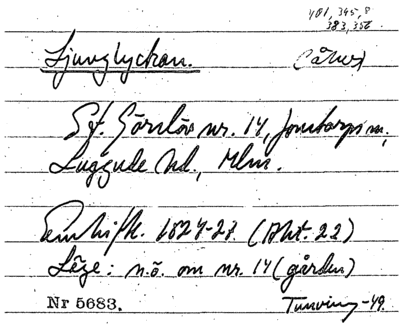 401, 345, 8
383, 356
Ljunglyckan.
(åker)
St. Görslöv nr. 14, Jonstorps sn,
Luggude hd., Mlm.
Enskifte. 1827-28 (Akt. 22)
Läge: n.ö. om nr. 14 (gården)
Nr 5683.
-49.